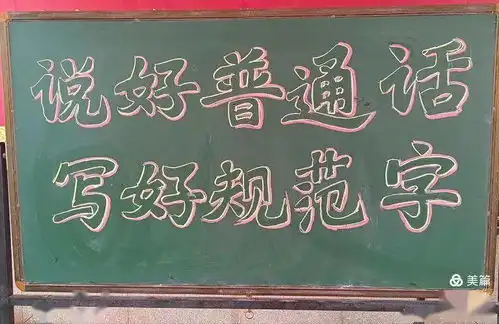 说好普通话
写好规范字
美篇